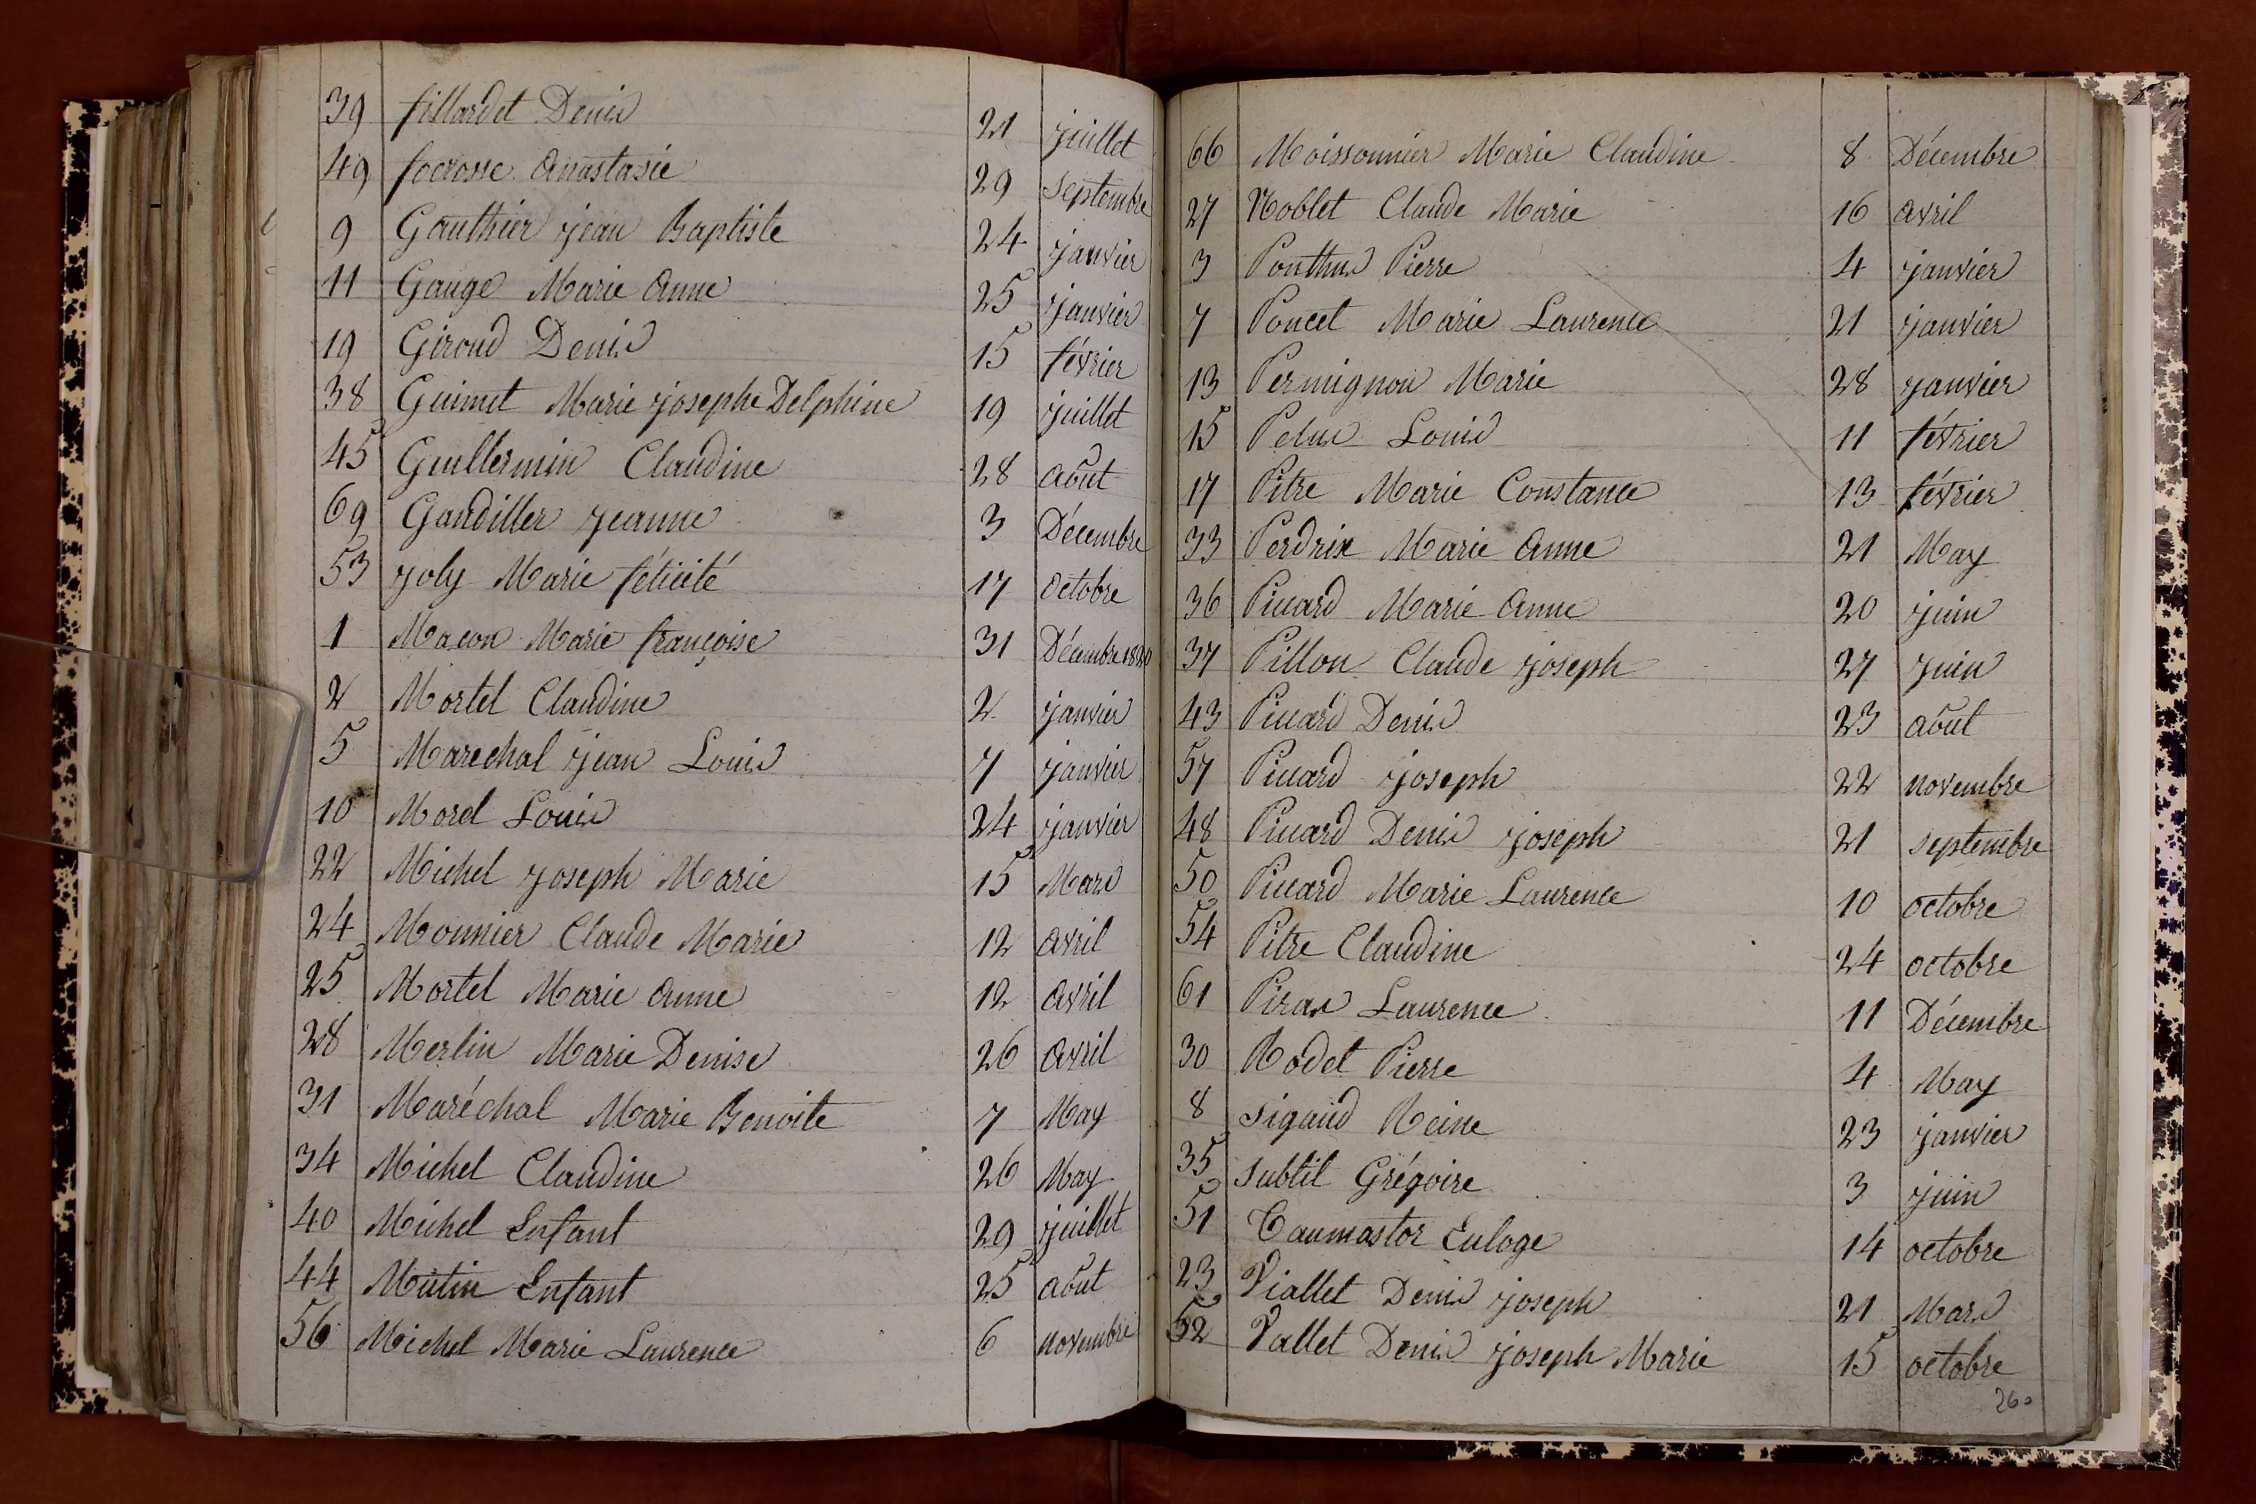 39 fillardet Denis 21 juillet
49 focrosse Anastasie 29 septembre
9 Gauthier jean Baptiste 24 janvier
11 Gauge Marie Anne 25 janvier
19 Giroud Denis 15 février
38 Guimet Marie josephe Delphine 19 juillet
45 Guillermin Claudine 28 Août
69 Gandiller jeanne 3 Décembre
53 joly Marie félicité 17 Octobre
1 Macon Marie françoise 31 Décembre 1820
2 Mortel Claudine 2 janvier
5 Marechal jean Louis 7 janvier
10 Morel Louis 24 janvier
22 Michel joseph Marie 15 Mars
24 Monnier Claude Marie 12 Avril
25 Mortel Marie Anne 12 Avril
28 Merlin Marie Denise 26 Avril
31 Maréchal Marie Benoite 7 May
34 Michel Claudine 26 May
40 Michel Enfant 29 juillet
44 Mutin Enfant 25 Août
56 Michel Marie Laurence 6 novembre
66 Moissonnier Marie Claudine 8 Décembre
27 Noblet Claude Marie 16 avril
3 Ponthus Pierre 4 janvier
7 Poncet Marie Laurence 21 janvier
13 Permignon Marie 28 janvier
15 Pelus Louis 11 février
17 Pitre Marie Constance 13 février
33 Perdrix Marie Anne 21 May
36 Picard Marie Anne 20 juin
37 Pillon Claude joseph 27 juin
43 Picard Denis 23 aout
57 Picard joseph 22 novembre
48 Picard Denis joseph 21 septembre
50 Picard Marie Laurence 10 octobre
54 Pitre Claudine 24 octobre
61 Piras Laurence 11 Décembre
30 Rodet Pierre 4 May
8 sigaud Reine 23 janvier
35 subtil Grégoire 3 juin
51 Taumastor Euloge 14 octobre
23 Viallet Denis joseph 21 Mars
52 Vallet Denis joseph Marie 15 octobre
260